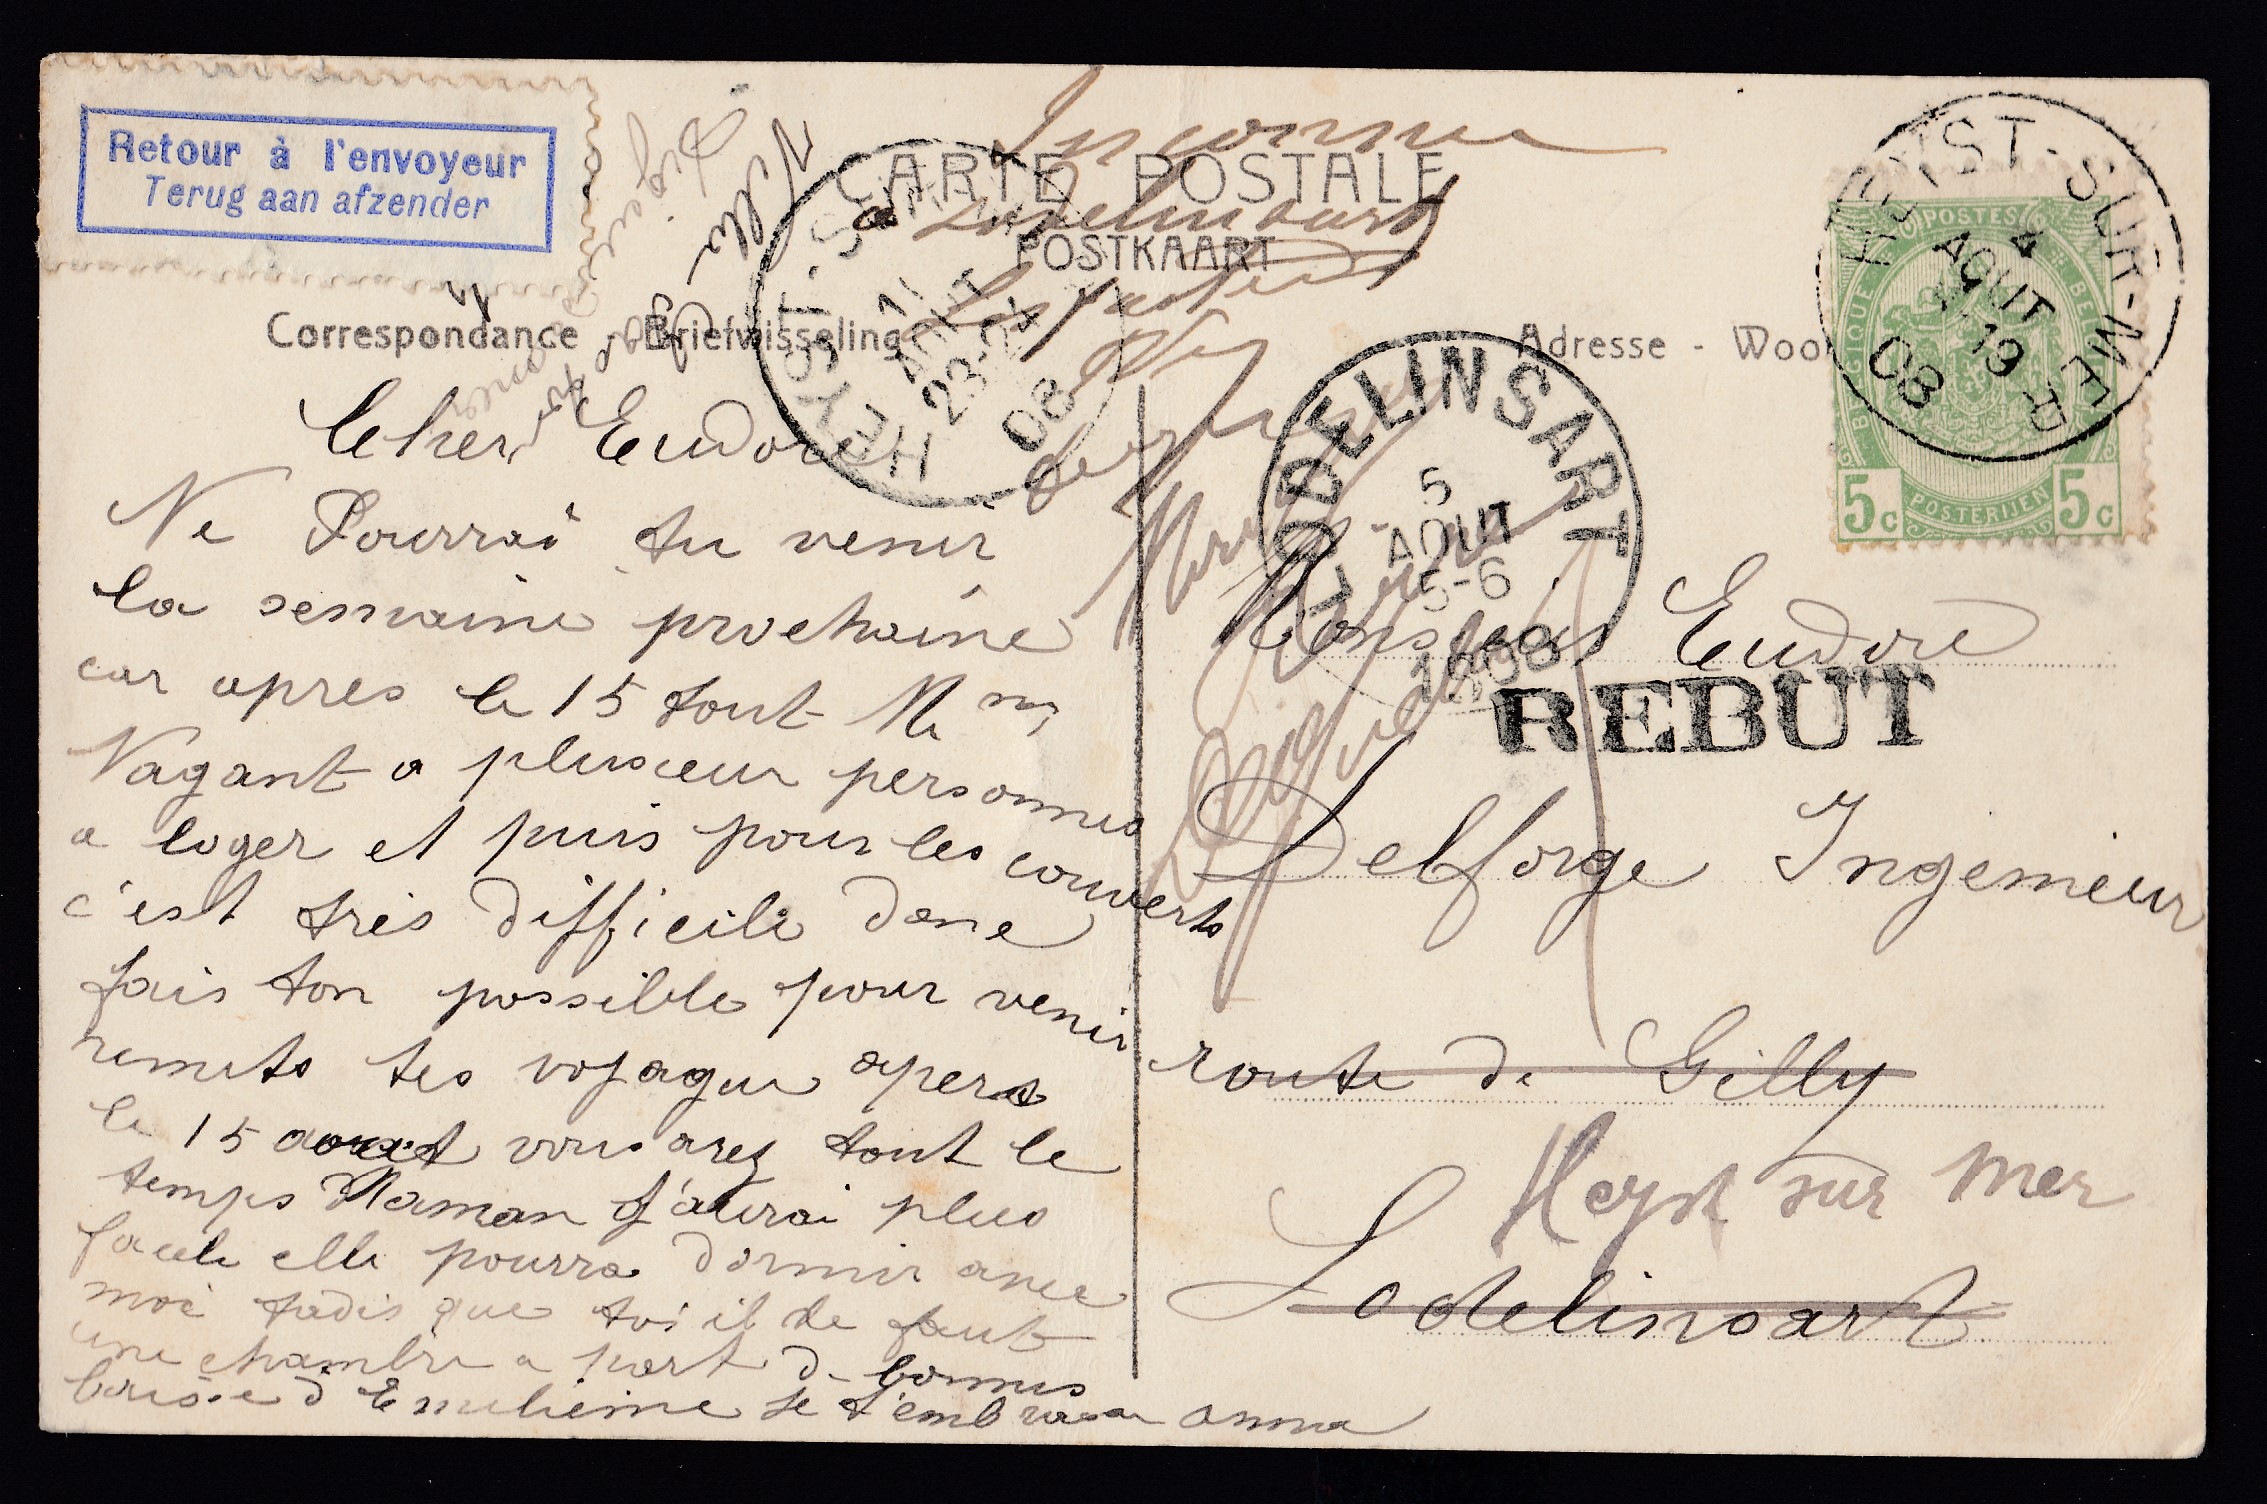 Retour à l'envoyeur
Terug aan afzender
Inconnu
CARTE POSTALE
à Lodelinsart
POSTKAART
Le facteur
Correspondance - Briefwisseling
Adresse - Woo
HEYST-SUR-MER
4
AOUT
19
08
POSTES
BELGIQUE
BELGIE
POSTERIJEN
5c 5c
HEYST-S
11
AOUT
23-24
08
LODELINSART
5
AOUT
5-6
1908
REBUT
Cher Eudore
Ne Pourrai tu venir
la semaine prochaine
car apres le 15 tout Me
Vagant a plusieur personnes
a loger et puis pour les couverts
c'est très difficile donc
fais ton possible pour venir
remets tes vojague apers
le 15 aout vous arez tout le
temps Maman j'aurai plus
facile elle pourra dormir avec
moi tadis que toi il te faut
une chambre a part d bonnes
baise d Emelieine je t'embrasse anna
Monsieur Eudore
Delforge Ingenieur
route de Gilly
Heyst sur Mer
Lodelinsart